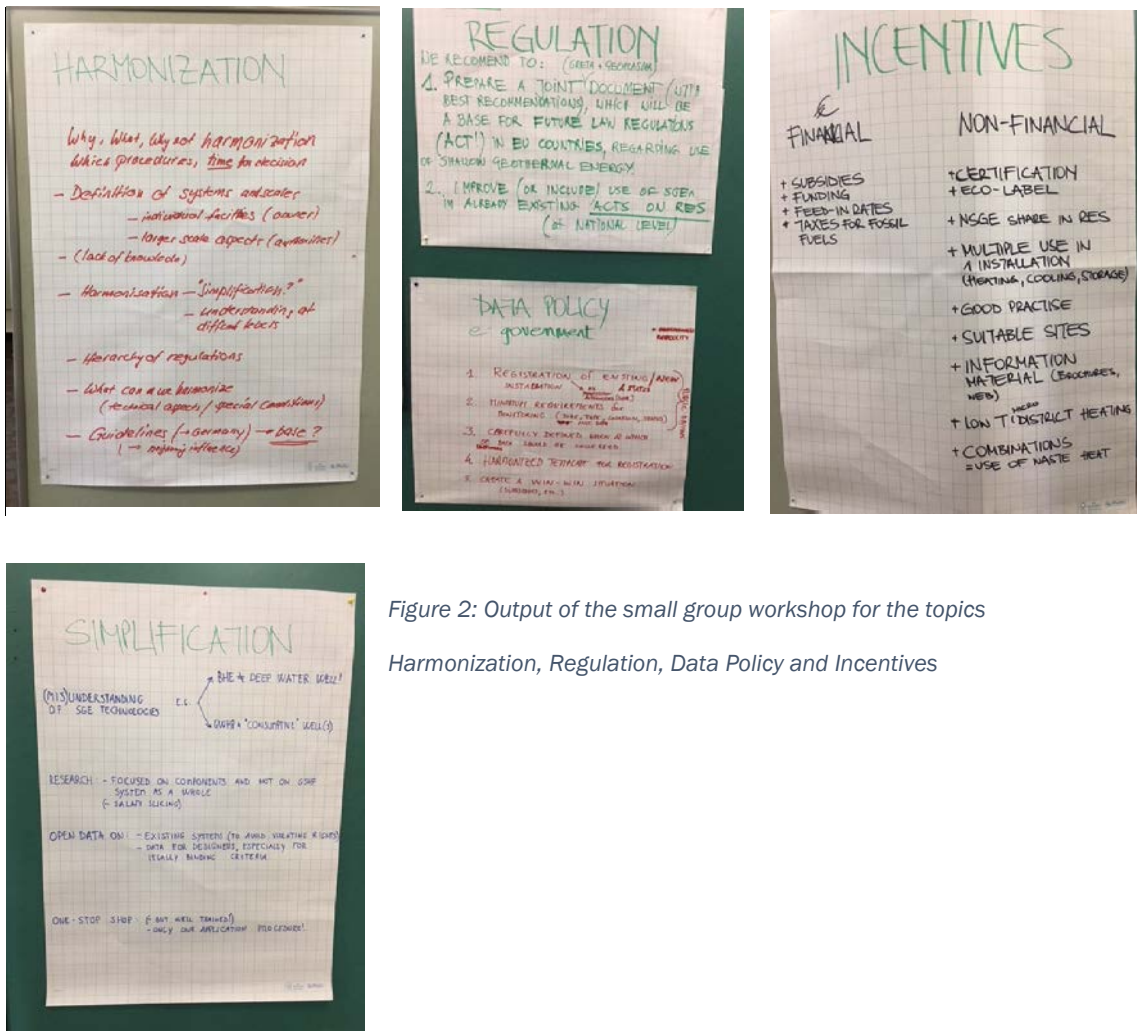 HARMONIZATION
Why, What, Why not harmonization
Which procedures, time for decision
- Definition of systems and scales
- individual facilities (owner)
- larger scale aspects
- (lack of knowledge)
- Harmonisation - "Simplification?"
- understanding at
different levels
- Hierarchy of regulations
- What can we harmonize
(technical aspects / special conditions)
- Guidelines (→ Germany) → base?
(→ mijning influence)
REGULATION
WE RECOMEND TO: (GRETA + GEOPLASMA)
1. PREPARE A JOINT DOCUMENT (WITH
BEST RECOMMENDATIONS), WHICH WILL BE
A BASE FOR FUTURE LAW REGULATIONS
("ACT") IN EU COUNTRIES, REGARDING USE
OF SHALLOW GEOTHERMAL ENERGY.
2. IMPROVE (OR INCLUDE) USE OF SGE
IN ALREADY EXISTING ACTS ON RES
(at NATIONAL LEVEL)
DATA POLICY
e-government
1. REGISTRATION OF EXISTING/NEW
INSTALLATION & STATUS
2. MINIMUM REQUIREMENTS for
MONITORING
3. CAREFULLY DEFINED WHEN & WHICH
DATA SHOULD BE
4. HARMONIZED TEMPLATE FOR REGISTRATION
5. CREATE A WIN-WIN SITUATION
(SUBSIDIES, etc.)
INCENTIVES
€
FINANCIAL
+ SUBSIDIES
+ FUNDING
+ FEED-IN RATES
+ TAXES FOR FOSSIL
FUELS
NON-FINANCIAL
+ CERTIFICATION
+ ECO-LABEL
+ NSGE SHARE IN RES
+ MULTIPLE USE IN
1 INSTALLATION
(HEATING, COOLING, STORAGE)
+ GOOD PRACTISE
+ SUITABLE SITES
+ INFORMATION
MATERIAL (BROCHURES,
WEB)
+ LOW T DISTRICT HEATING
+ COMBINATIONS
= USE OF WASTE HEAT
SIMPLIFICATION
(MIS)UNDERSTANDING
OF SGE TECHNOLOGIES
E.G.
BHE ≠ DEEP WATER WELL!
GWHP ≠ "CONSUMPTIVE" WELL(S)
RESEARCH: - FOCUSED ON COMPONENTS AND NOT ON GSHP
SYSTEM AS A WHOLE
(- SALAMI SLICING)
OPEN DATA ON: - EXISTING SYSTEMS (TO AVOID VIOLATING RIGHTS)
- DATA FOR DESIGNERS, ESPECIALLY FOR
LEGALLY BINDING CRITERIA
ONE-STOP SHOP: (- BUT WELL TRAINED!)
- ONLY ONE APPLICATION PROCEDURE!
Figure 2: Output of the small group workshop for the topics
Harmonization, Regulation, Data Policy and Incentives